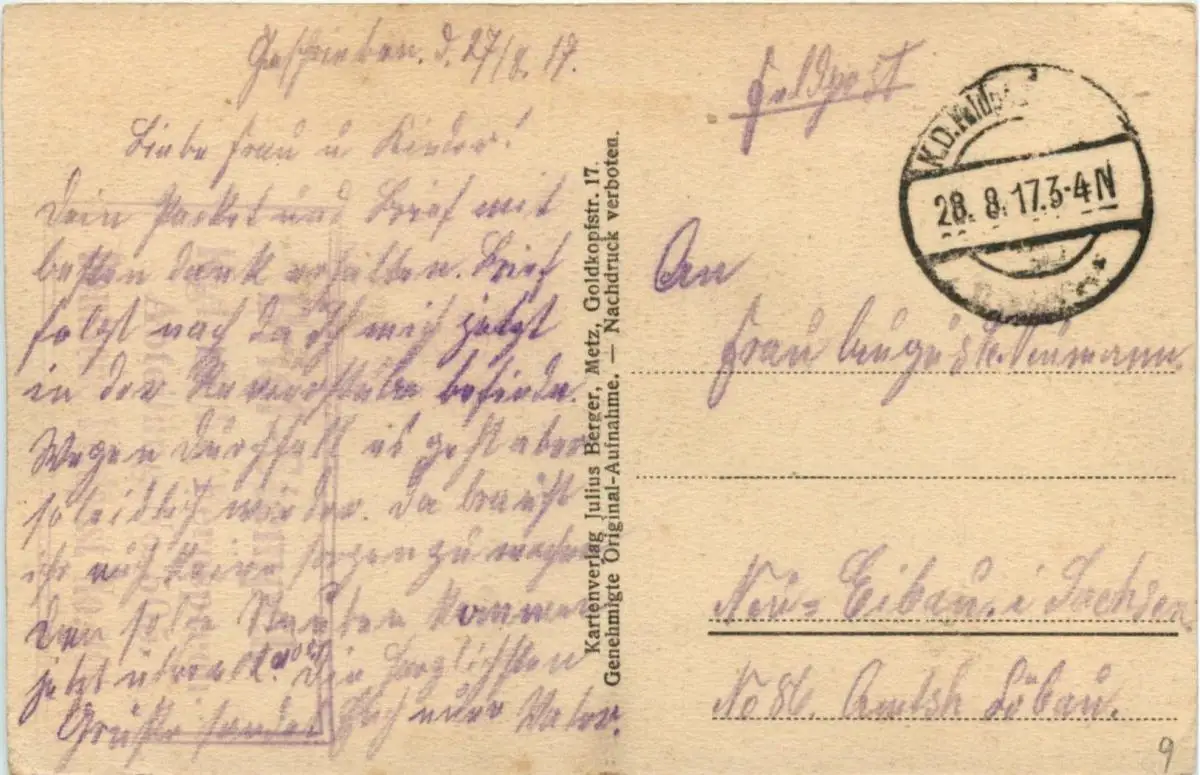 Geschrieben. d. 27/8. 17.
Liebe Frau u Kinder!
Dein Packet und Brief mit
besten dank erhalten. Brief
folgt nach da ich mich jetzt
in der Revierstube befinde.
Wegen Durchfall es geht aber
so leidlich wieder. da braucht
ihr euch keine sorgen zu machen
den solche kommen
jetzt überall vor. Die herzlichsten
Grüße sendet Euch euer Vater.
Kartenverlag Julius Berger, Metz, Goldkopfstr. 17.
Genehmigte Original-Aufnahme. — Nachdruck verboten.
Feldpost
K.D. Feldp
28. 8. 17. 3-4 N
An
Frau Auguste Neumann.
Neu= Eibau. i Sachsen.
No 86. Amtsh Löbau.
9